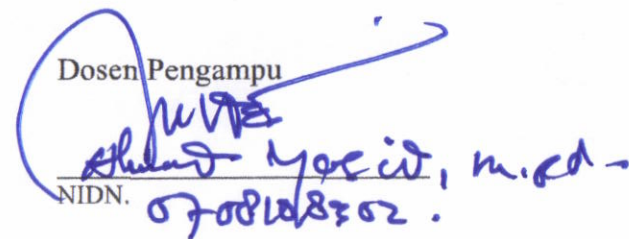 Dosen Pengampu
Ahmad Yazid, M.Ed.
NIDN. 0708108302.